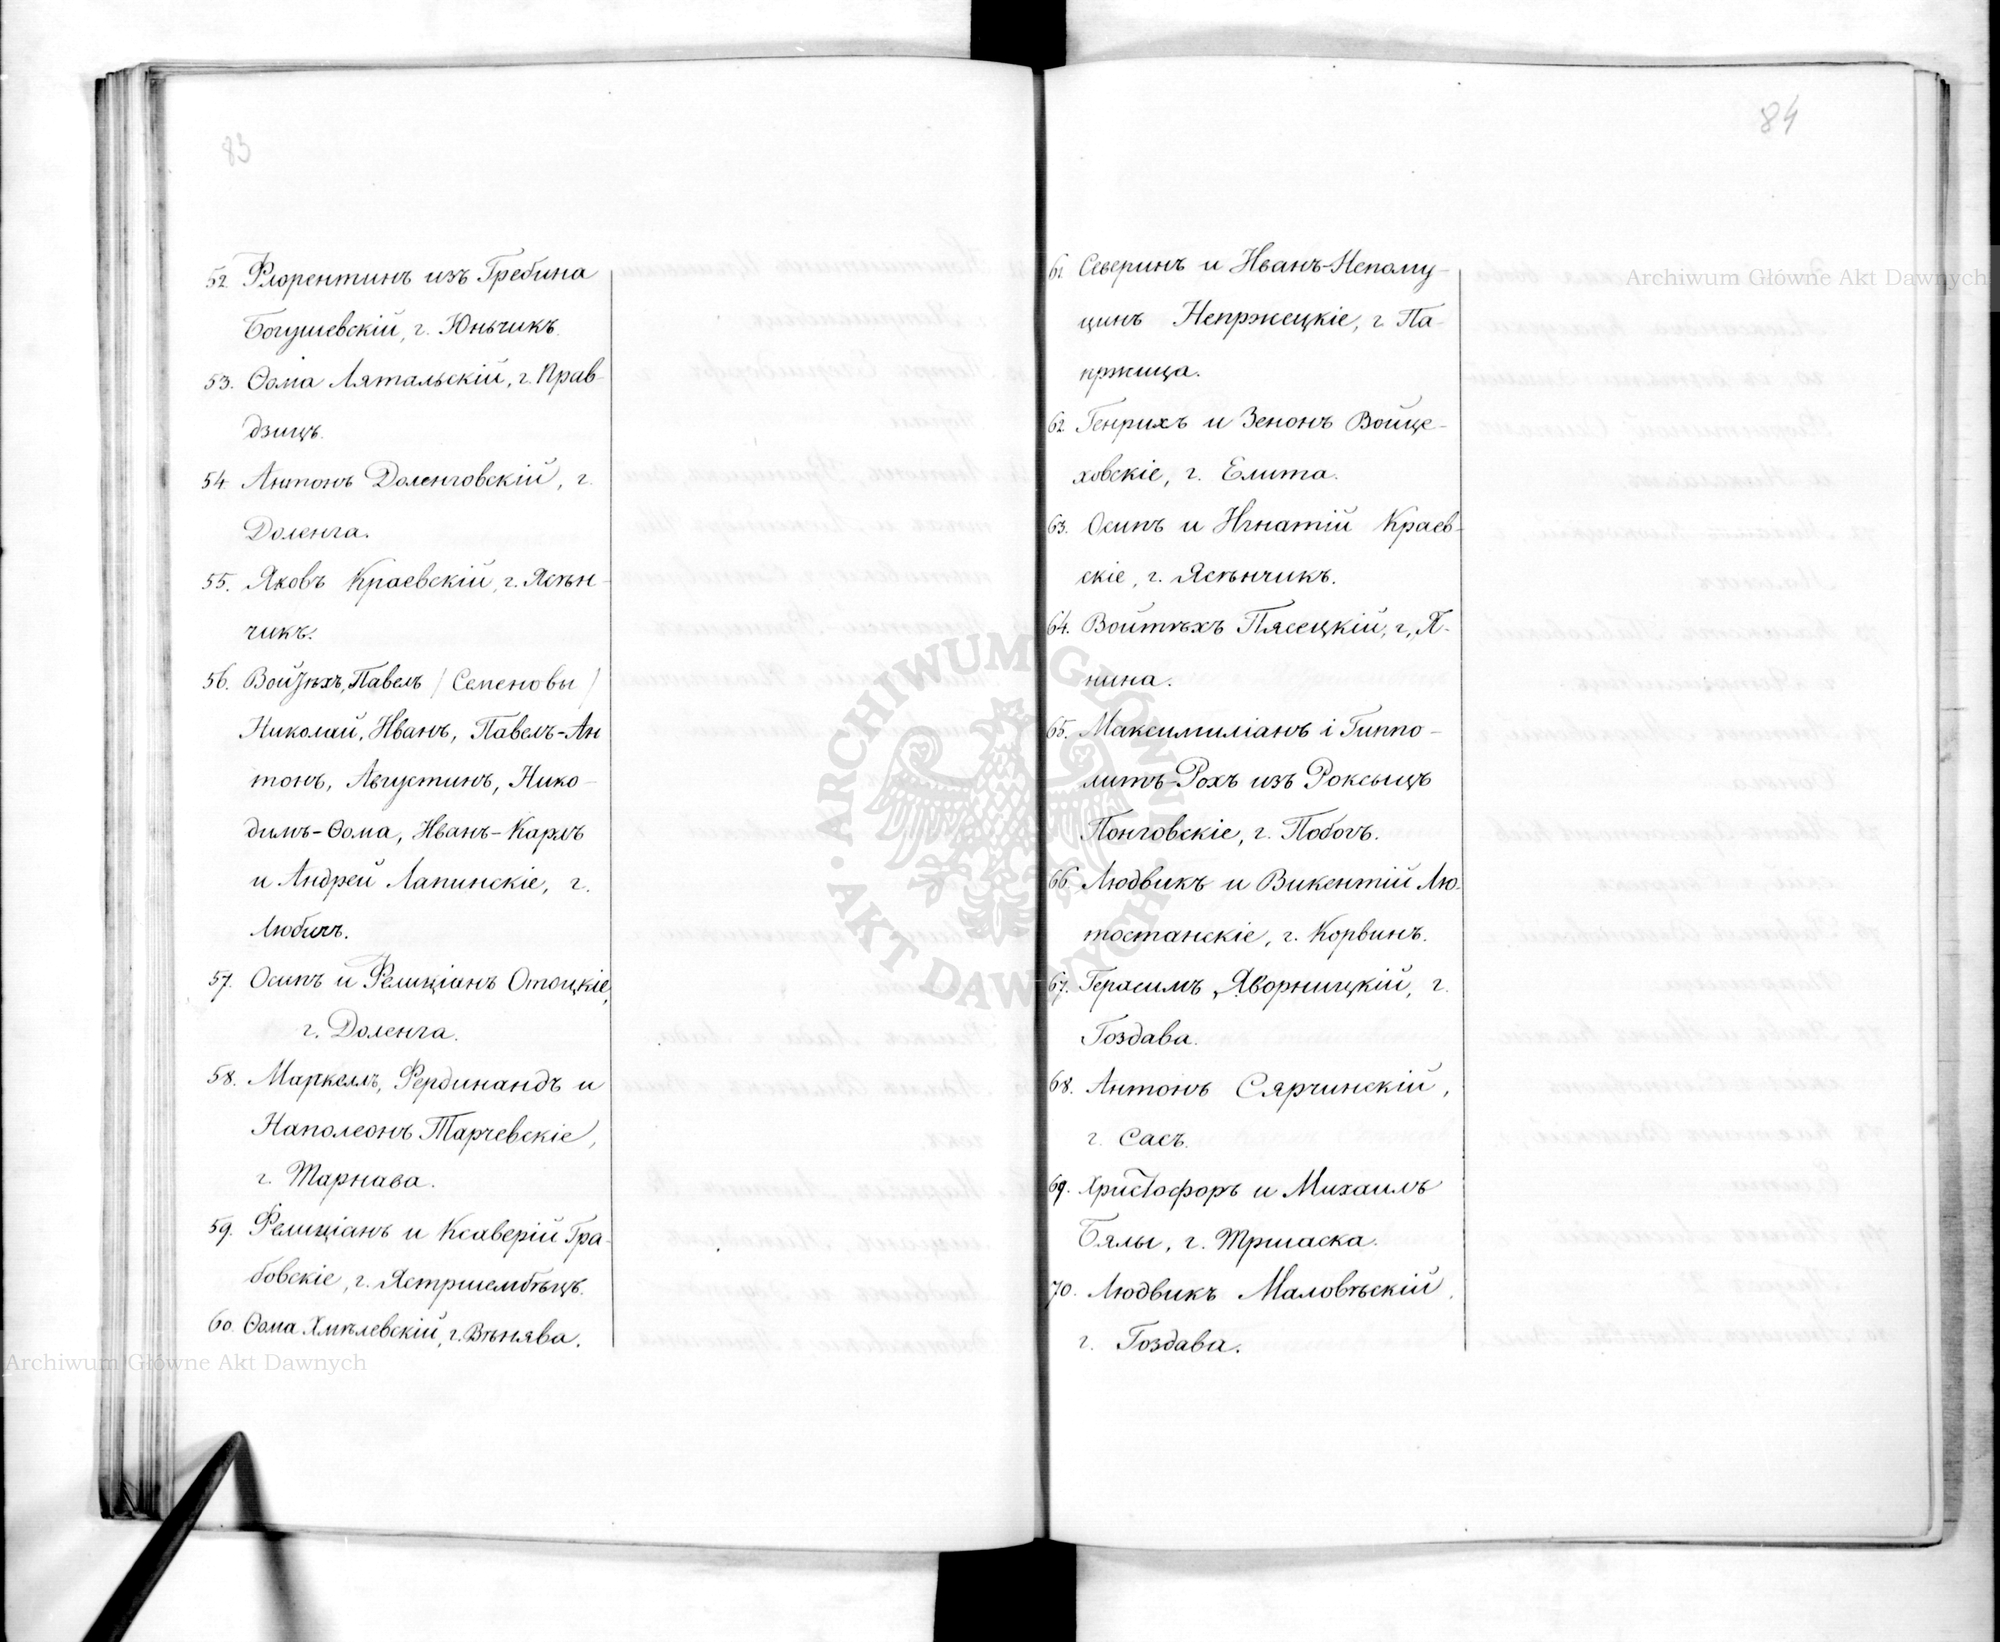 83
52. Флорентинъ изъ Гребина
Богушевскій, г. Юньчикъ.
53. Ѳома Лятальскій, г. Прав-
дзицъ.
54. Антонъ Доленговскій, г.
Доленга.
55. Яковъ Краевскій, г. Ясѣн-
чикъ.
56. Войтѣхъ, Павелъ / Семеновы /
Николай, Иванъ, Павелъ-Ан
тонъ, Августинъ, Нико-
димъ-Ѳома, Иванъ-Карлъ
и Андрей Лапинскіе, г.
Любичъ.
57. Осипъ и Фелиціанъ Отоцкіе,
г. Доленга.
58. Маркеллъ, Фердинандъ и
Наполеонъ Тарчевскіе,
г. Тарнава.
59. Фелиціанъ и Ксаверій Гра-
бовскіе, г. Ястршембѣцъ.
60. Ѳома Хмѣлевскій, г. Вѣнява.
84
61. Северинъ и Иванъ-Непому-
цинъ Непржецкіе, г. Па-
пржица.
62. Генрихъ и Зенонъ Войце-
ховскіе, г. Елита.
63. Осипъ и Игнатій Краев-
скіе, г. Ясѣнчикъ.
64. Войтѣхъ Пясецкій, г, Я-
нина.
65. Максимиліанъ і Гиппо-
литъ-Рохъ изъ Роксыцъ
Понговскіе, г. Побогъ.
66. Людвикъ и Викентій Лю-
тостанскіе, г. Корвинъ.
67. Герасимъ Яворницкій, г.
Гоздава.
68. Антонъ Сярчинскій,
г. Сасъ.
69. Христофоръ и Михаилъ
Бялы, г. Тршаска.
70. Людвикъ Маловѣскій,
г. Гоздава.
Archiwum Główne Akt Dawnych
ARCHIWUM GŁÓWNE AKT DAWNYCH
Archiwum Główne Akt Dawnych